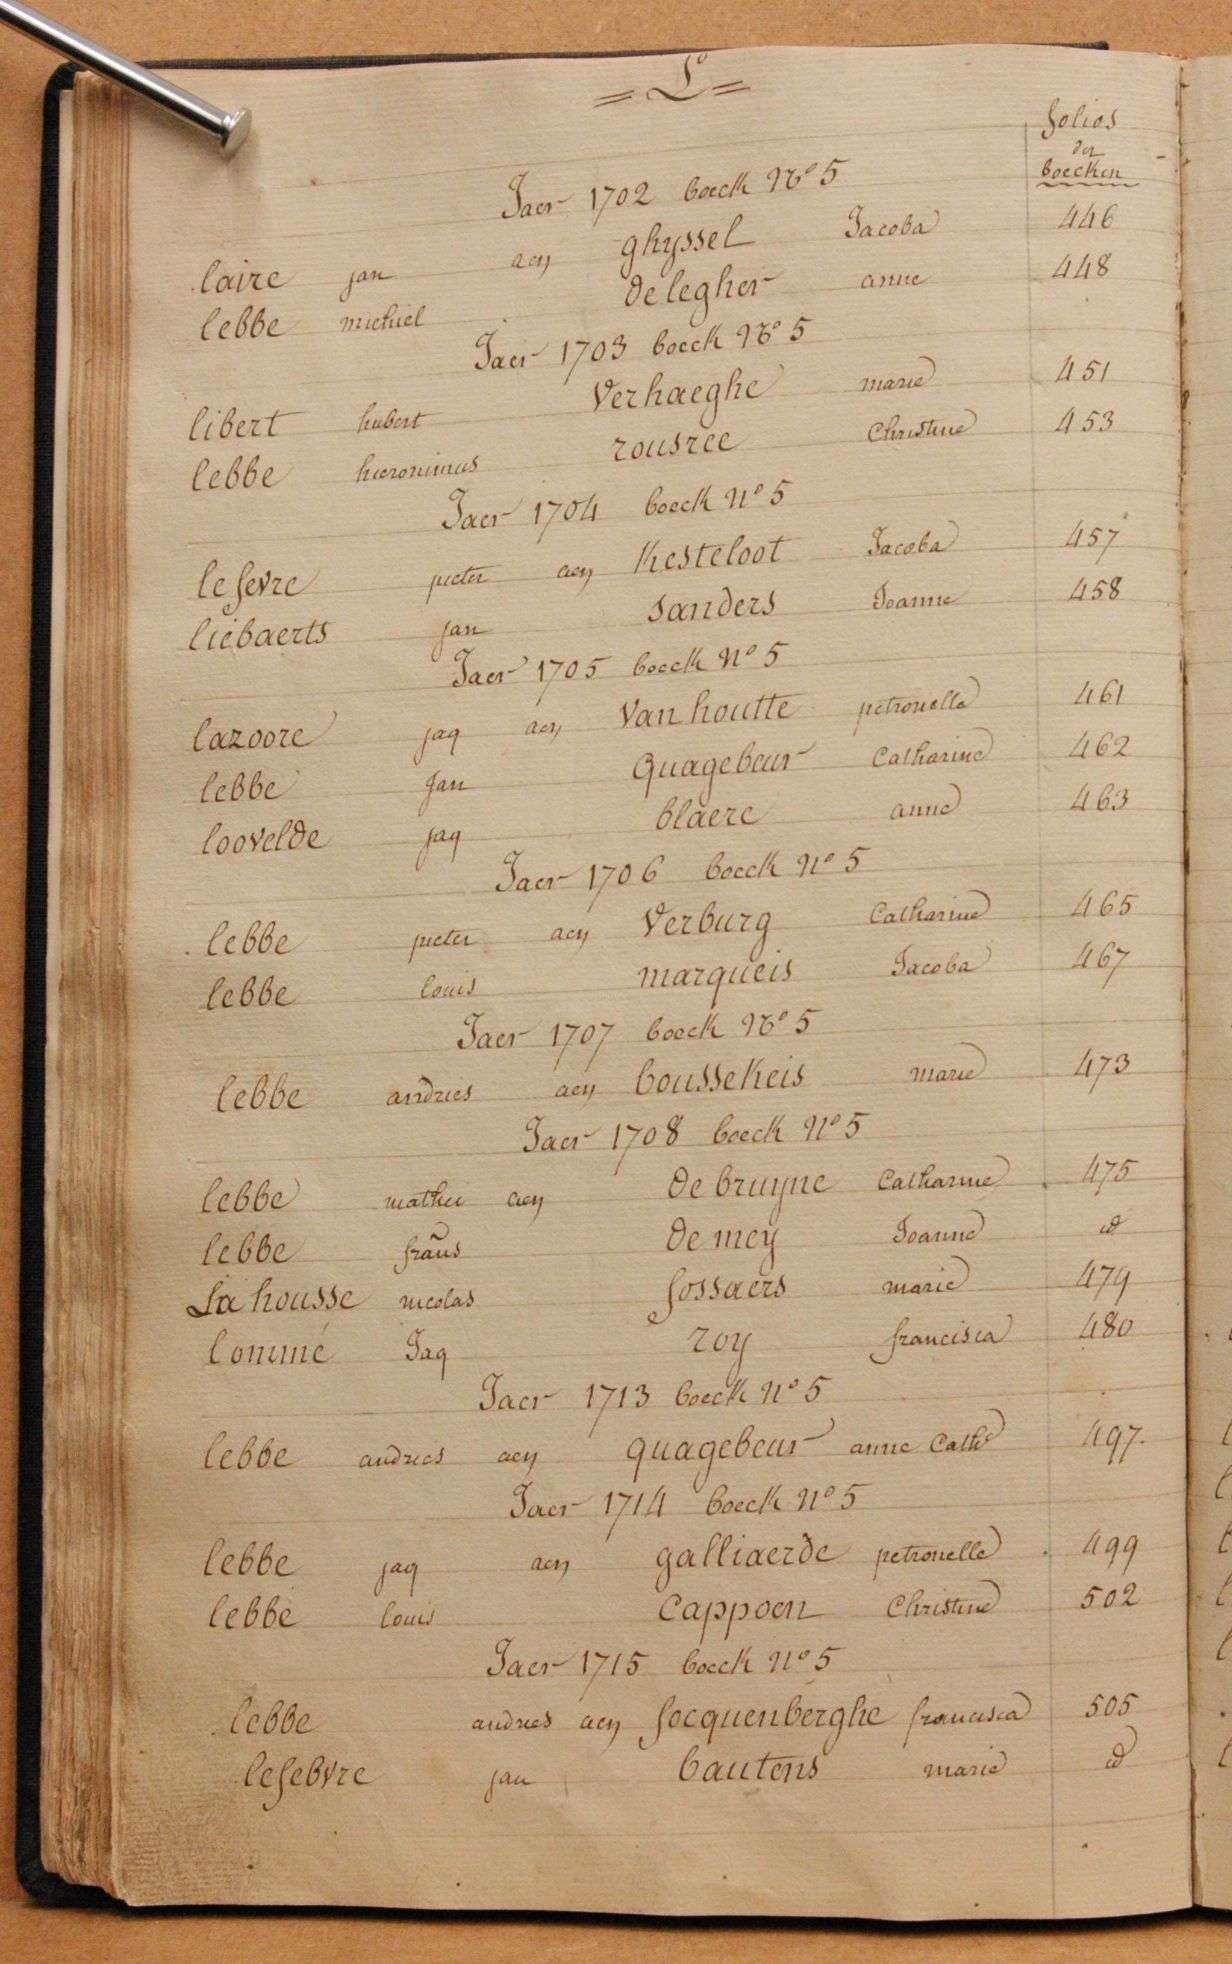 = L° =
folios
der
boecken
Jaer 1702 boeck N° 5
laire jan aen ghyssel Jacoba 446
lebbe michiel de legher anne 448
Jaer 1703 boeck N° 5
libert hubert Verhaeghe marie 451
lebbe hieronimus rousree Christine 453
Jaer 1704 boeck N° 5
lefevre pieter aen Kesteloot Jacoba 457
liebaerts jan Sanders Joanne 458
Jaer 1705 boeck N° 5
lazoore jaq aen Van houtte petronelle 461
lebbe Jan Quagebeur Catharine 462
loovelde jaq blaere anne 463
Jaer 1706 boeck N° 5
lebbe pieter aen Verburg Catharine 465
lebbe louis marqueis Jacoba 467
Jaer 1707 boeck N° 5
lebbe andries aen boussekeis marie 473
Jaer 1708 boeck N° 5
lebbe mathie aen de bruyne Catharine 475
lebbe frañs de mey Joanne id
La housse nicolas fossaers marie 479
lommé Jaq roy francisca 480
Jaer 1713 boeck N° 5
lebbe andries aen quagebeur anne Cathe 497.
Jaer 1714 boeck N° 5
lebbe jaq aen galliaerde petronelle 499
lebbe louis Cappoen Christine 502
Jaer 1715 boeck N° 5
lebbe andries aen focquenberghe francisca 505
lefebvre jan bautens marie id